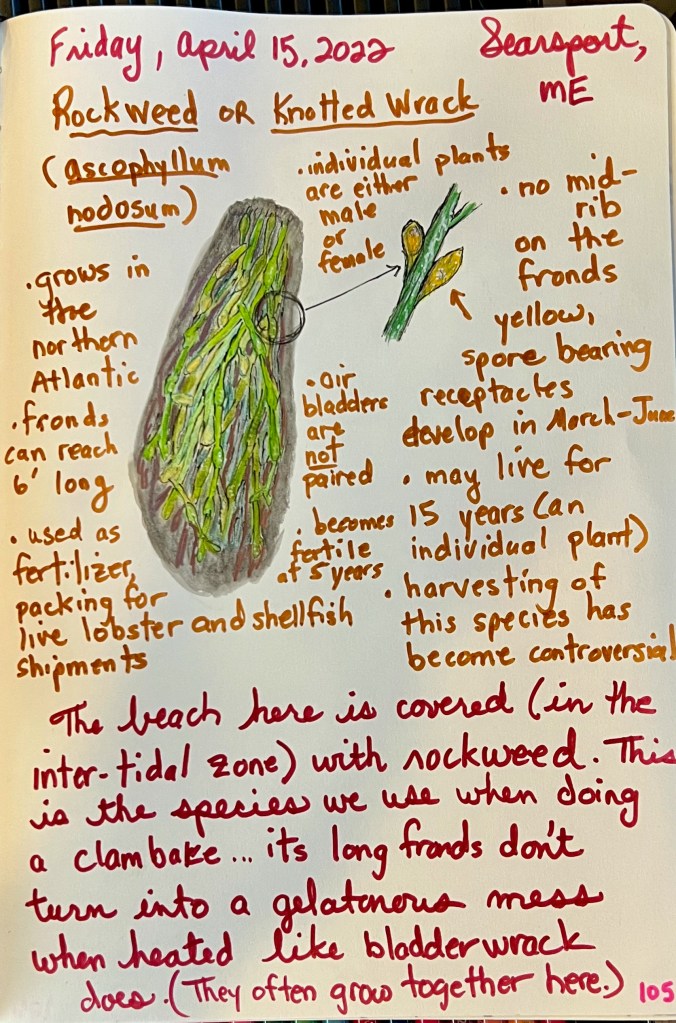 Friday, April 15, 2022
Searsport,
ME
Rockweed or Knotted Wrack
(ascophyllum
nodosum)
• individual plants
are either
male
or
female
• no mid-
rib
on the
fronds
• grows in
the
northern
Atlantic
• fronds
can reach
6' long
• used as
fertilizer,
packing for
live lobster and shellfish
shipments
• air
bladders
are
not
paired
• becomes
fertile
at 5 years
yellow,
spore bearing
receptacles
develop in March-June
• may live for
15 years (an
individual plant)
• harvesting of
this species has
become controversial
The beach here is covered (in the
inter-tidal zone) with rockweed. This
is the species we use when doing
a clambake... its long fronds don't
turn into a gelatenous mess
when heated like bladderwrack
does. (They often grow together here.)
105